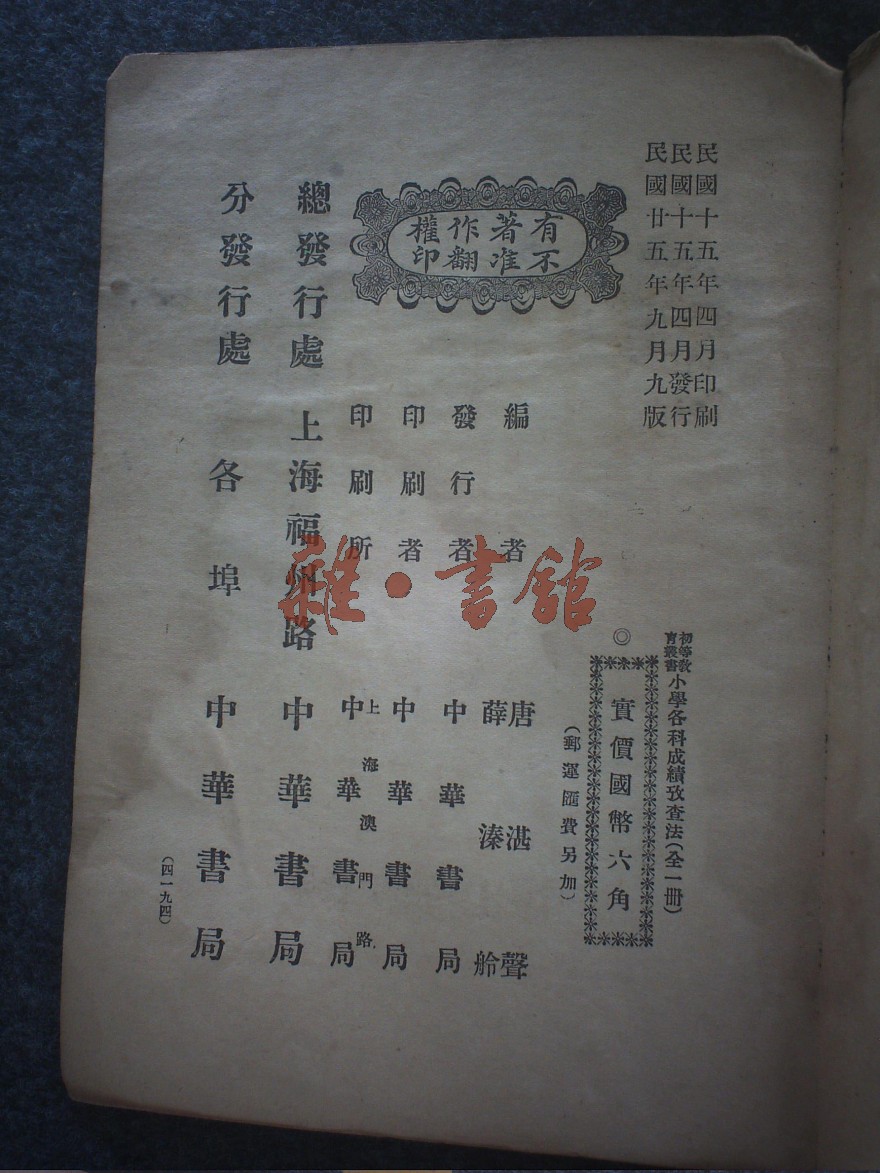 民國十五年四月印刷
民國十五年四月發行
民國廿五年九月九版
初等教育叢書 小學各科成績攷查法(全一冊)
◎實價國幣六角
(郵運匯費另加)
有著作權
不准翻印
編者 唐湛聲 薛溱舲
發行者 中華書局
印刷者 中華書局
印刷所 上海澳門路 中華書局
總發行處 上海福州路 中華書局
分發行處 各埠 中華書局
(四一九四)
雜·書館